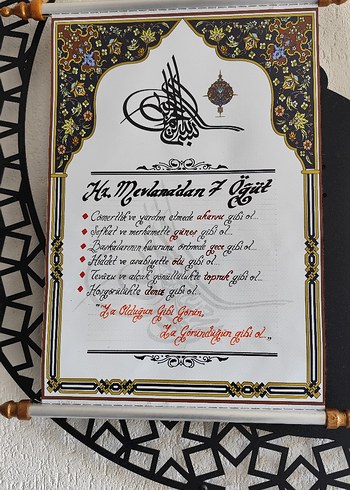 Hz. Mevlana'dan 7 Öğüt
Cömertlik ve yardım etmede akarsu gibi ol...
Şefkat ve merhamette güneş gibi ol...
Başkalarının kusurunu örtmede gece gibi ol...
Hiddet ve asabiyette ölü gibi ol...
Tevazu ve alçak gönüllülükte toprak gibi ol...
Hoşgörülükte deniz gibi ol...
"Ya Olduğun Gibi Görün,
Ya Göründüğün gibi ol..„